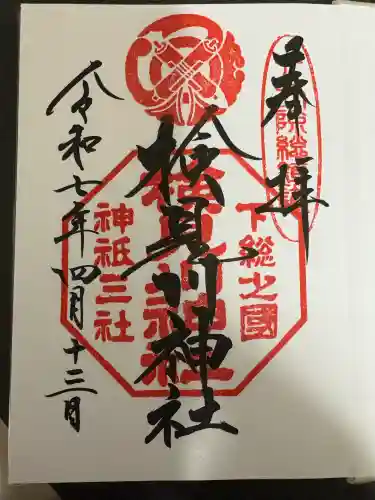 奉拝
下総之國
検見川神社
検見川神社
神祇三社
令和七年四月十三日